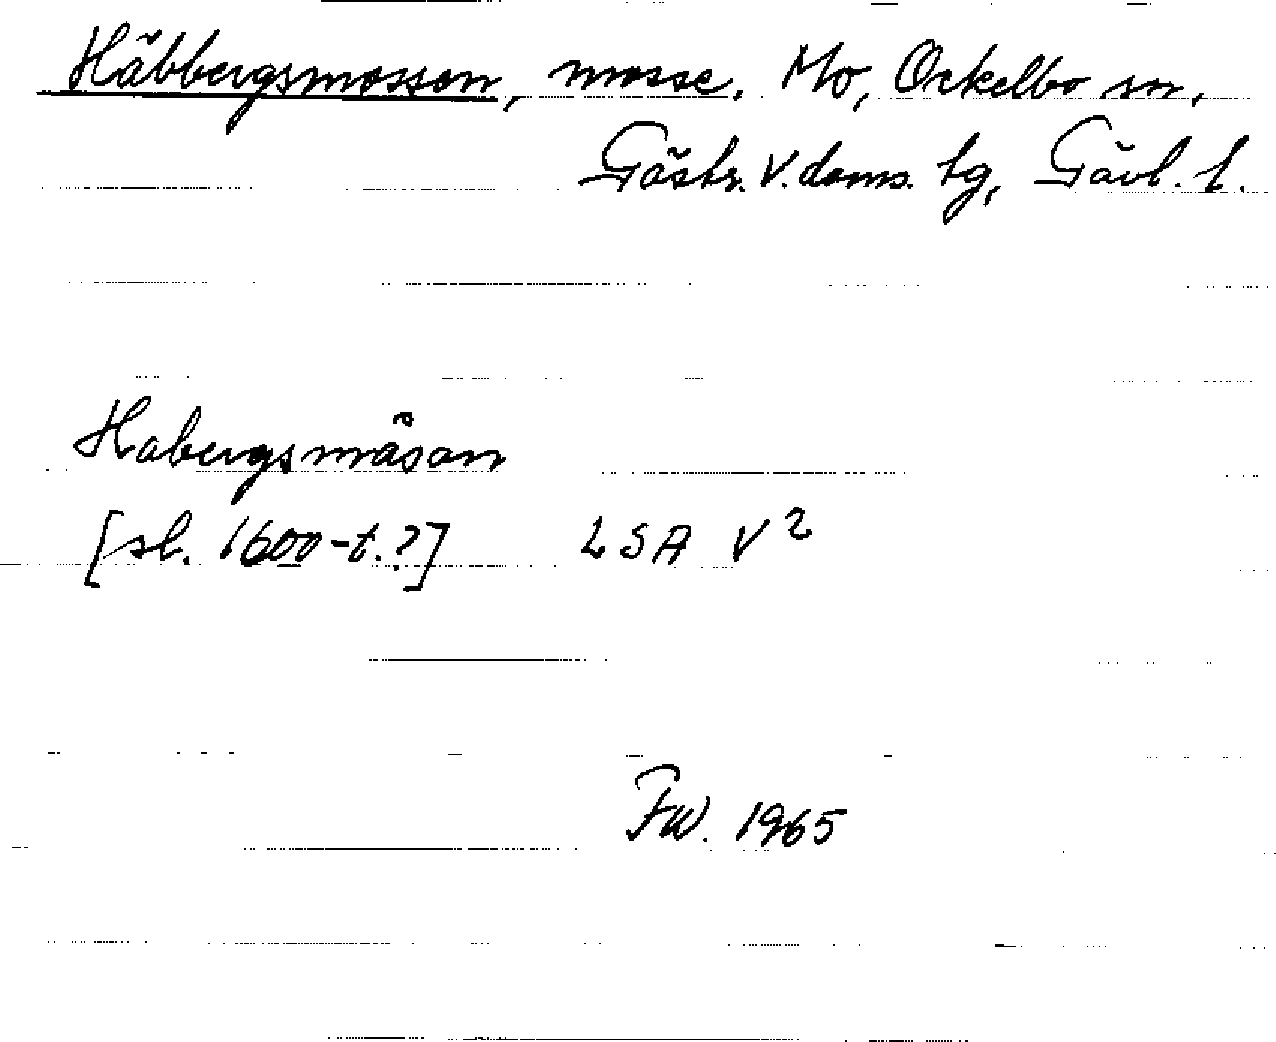 Häbbergsmossen, mosse. Mo, Ockelbo sn,
Gästr. V. doms. tg, Gävl. l.
Habergsmåsan
[sl. 1600-t.?] LSA V2
FW. 1965